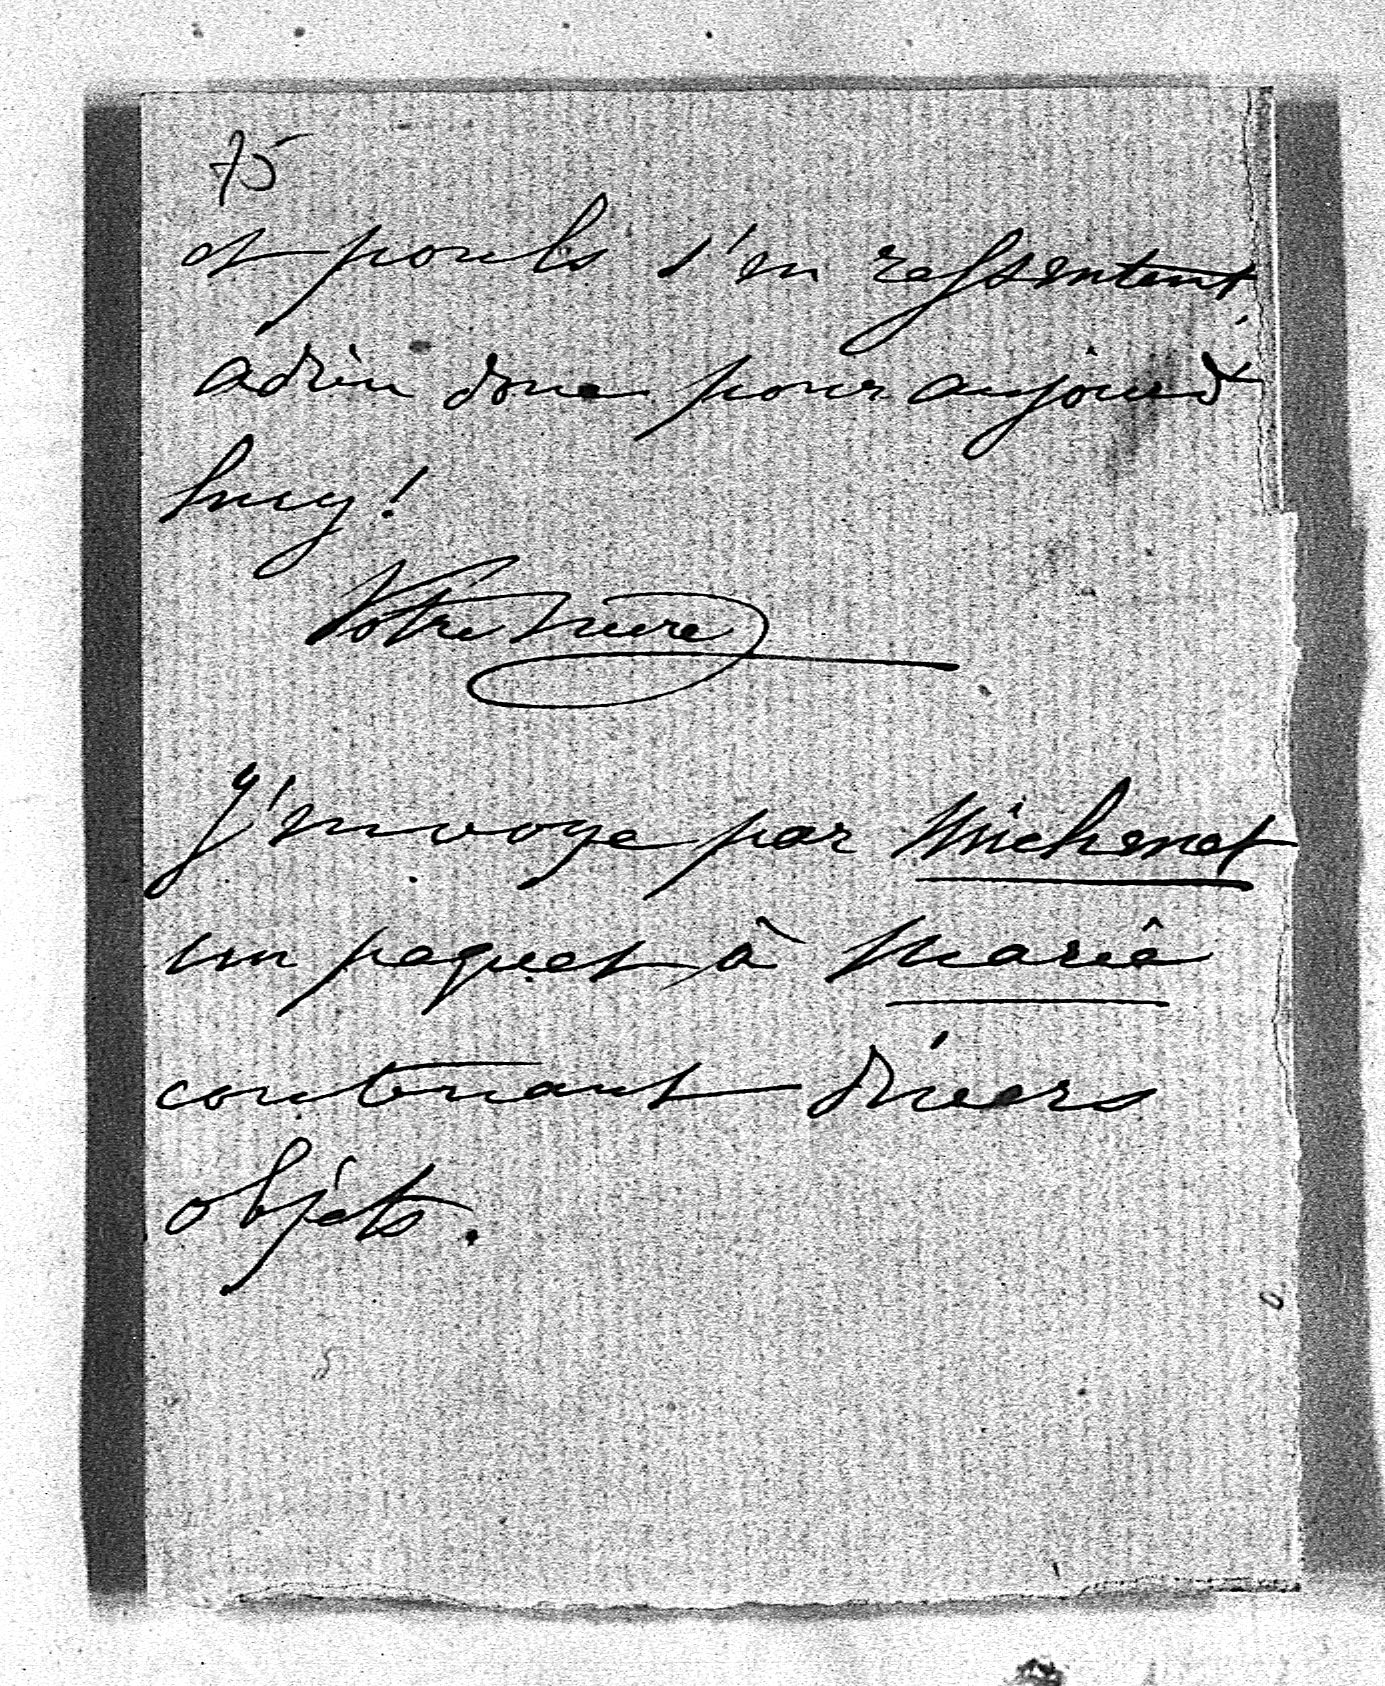 75
et pouls s'en ressentent
adieu donc pour aujourd
huy!
Votre mere
J'envoye par Michenet
un paquet à Marie
contenant divers
objets.